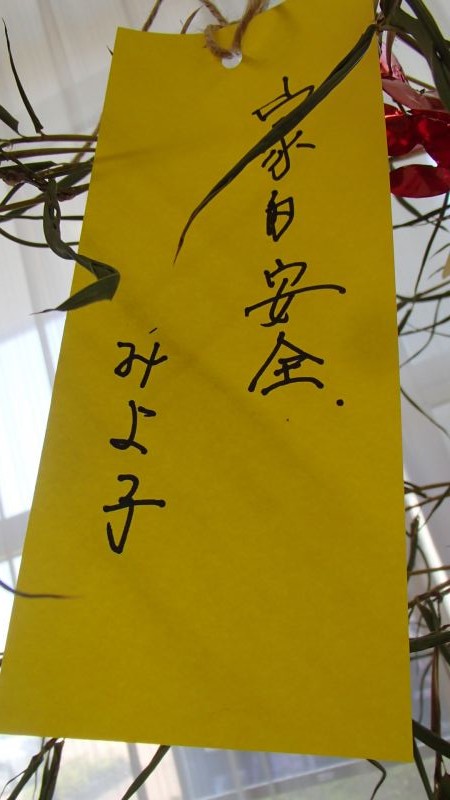 家内安全.
みよ子